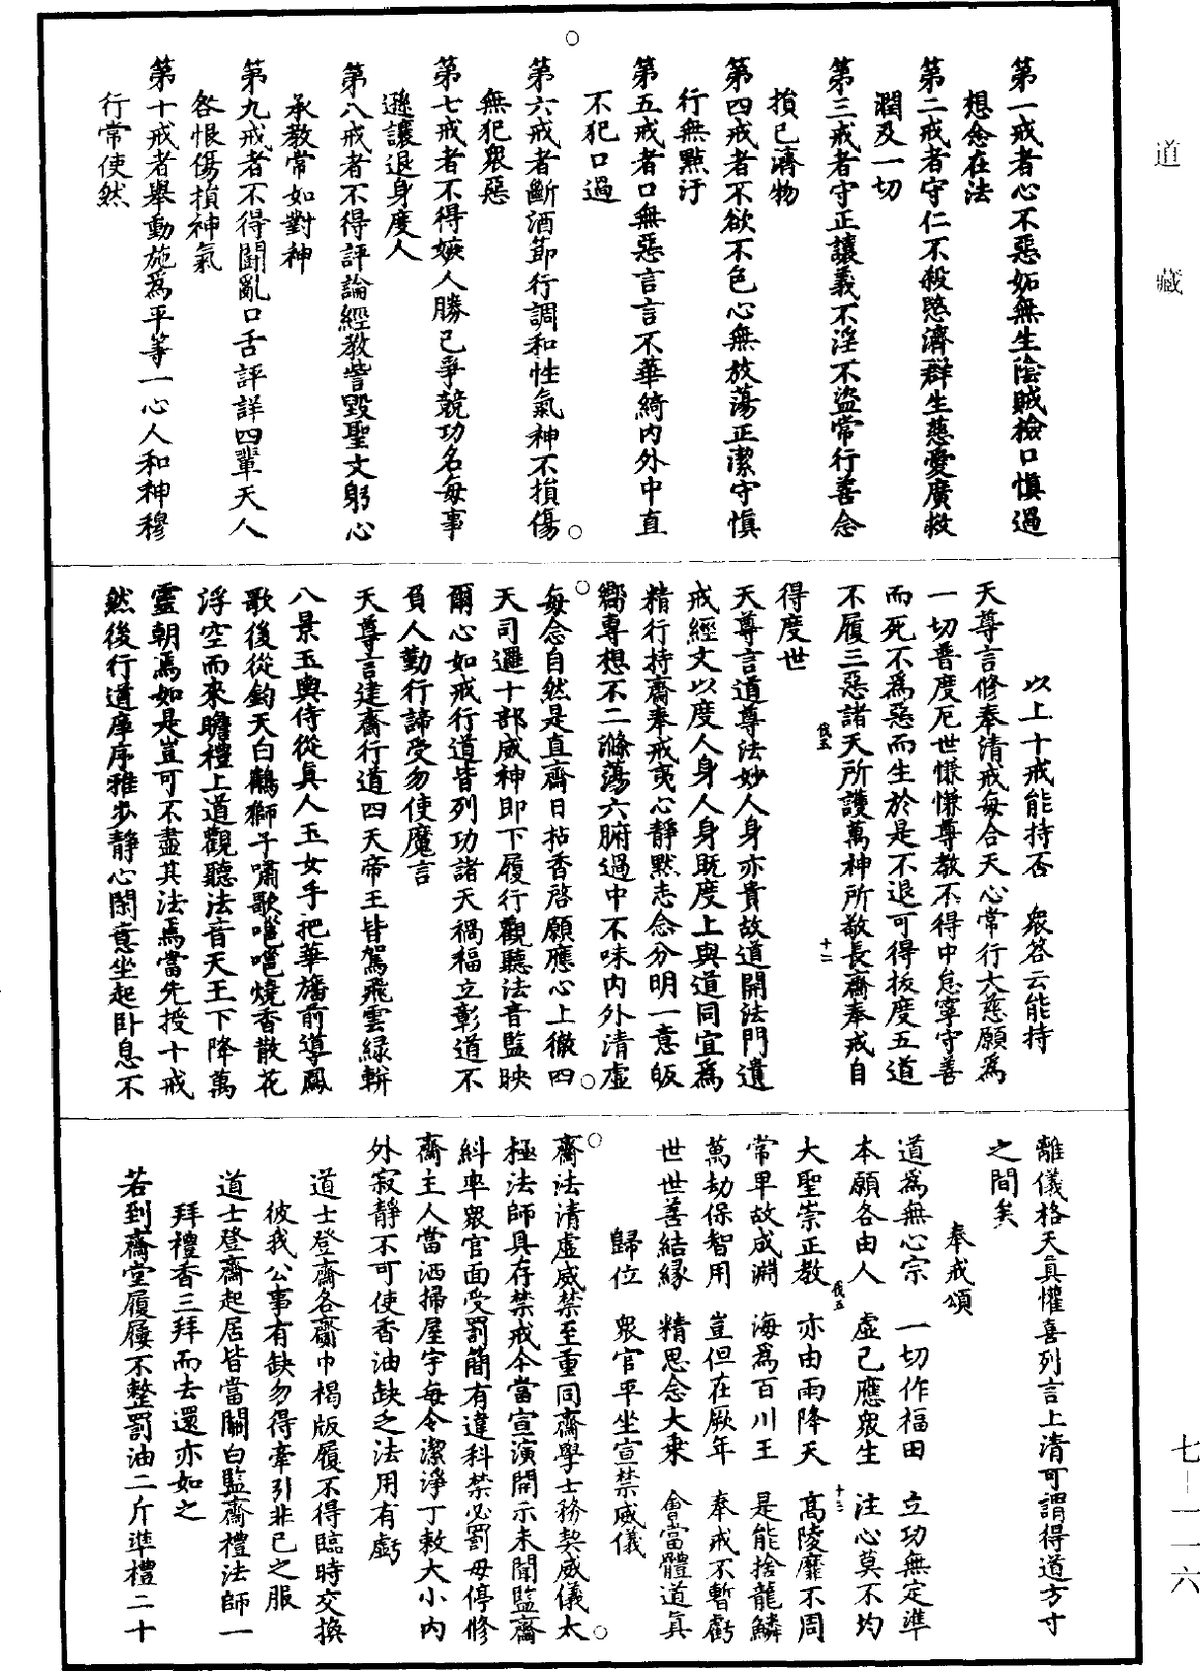 道藏
第一戒者心不惡妬無生陰賊檢口愼過
想念在法
第二戒者守仁不殺愍濟群生慈愛廣救
潤及一切
第三戒者守正讓義不淫不盜常行善念
損己濟物
第四戒者不欲不色心無放蕩正潔守愼
行無點汙
第五戒者口無惡言言不華綺內外中直
不犯口過
第六戒者斷酒節行調和性氣神不損傷
無犯衆惡
第七戒者不得嫉人勝己爭競功名每事
遜讓退身度人
第八戒者不得評論經教訾毀聖文躬心
承教常如對神
第九戒者不得鬪亂口舌評詳四輩天人
咎恨傷損神氣
第十戒者舉動施爲平等一心人和神穆
行常使然
以上十戒能持否　衆答云能持
天尊言修奉清戒每合天心常行大慈願爲
一切普度厄世慊慊尊教不得中怠寧守善
而死不爲惡而生於是不退可得拔度五道
不履三惡諸天所護萬神所敬長齋奉戒自
得度世
天尊言道尊法妙人身亦貴故道開法門遺
戒經文以度人身人身既度上與道同宜爲
精行持齋奉戒夷心靜默志念分明一意皈
嚮專想不二滌蕩六腑過中不味內外清虛
每念自然是直齋日拈香啓願應心上徹四
天司邏十部威神即下履行觀聽法音監映
爾心如戒行道皆列功諸天禍福立彰道不
負人勤行諦受勿使魔言
天尊言建齋行道四天帝王皆駕飛雲緑軿
八景玉輿侍從眞人玉女手把華旛前導鳳
歌後從鈞天白鶴獅子嘯歌嗈嗈燒香散花
浮空而來瞻禮上道觀聽法音天王下降萬
靈朝焉如是豈可不盡其法焉當先授十戒
然後行道庠序雅步靜心閑意坐起卧息不
離儀格天眞懽喜列言上清可謂得道方寸
之間矣
奉戒頌
道爲無心宗　一切作福田　立功無定準
本願各由人　虛己應衆生　注心莫不均
大聖崇正教　亦由雨降天　高陵靡不周
常卑故成淵　海爲百川王　是能捨龍鱗
萬劫保智用　豈但在厥年　奉戒不暫虧
世世善結緣　精思念大乘　會當體道眞
歸位　衆官平坐宣禁威儀
齋法清虛威禁至重同齋學士務契威儀太
極法師具存禁戒今當宣演開示未聞監齋
糾率衆官面受罰簡有違科禁必罰毋停修
齋主人當洒掃屋宇每令潔淨丁敕大小內
外寂靜不可使香油缺乏法用有虧
道士登齋各齎巾褐版履不得臨時交換
彼我公事有缺勿得牽引非己之服
道士登齋起居皆當關白監齋禮法師一
拜禮香三拜而去還亦如之
若到齋堂履屨不整罰油二斤準禮二十
七－一一六